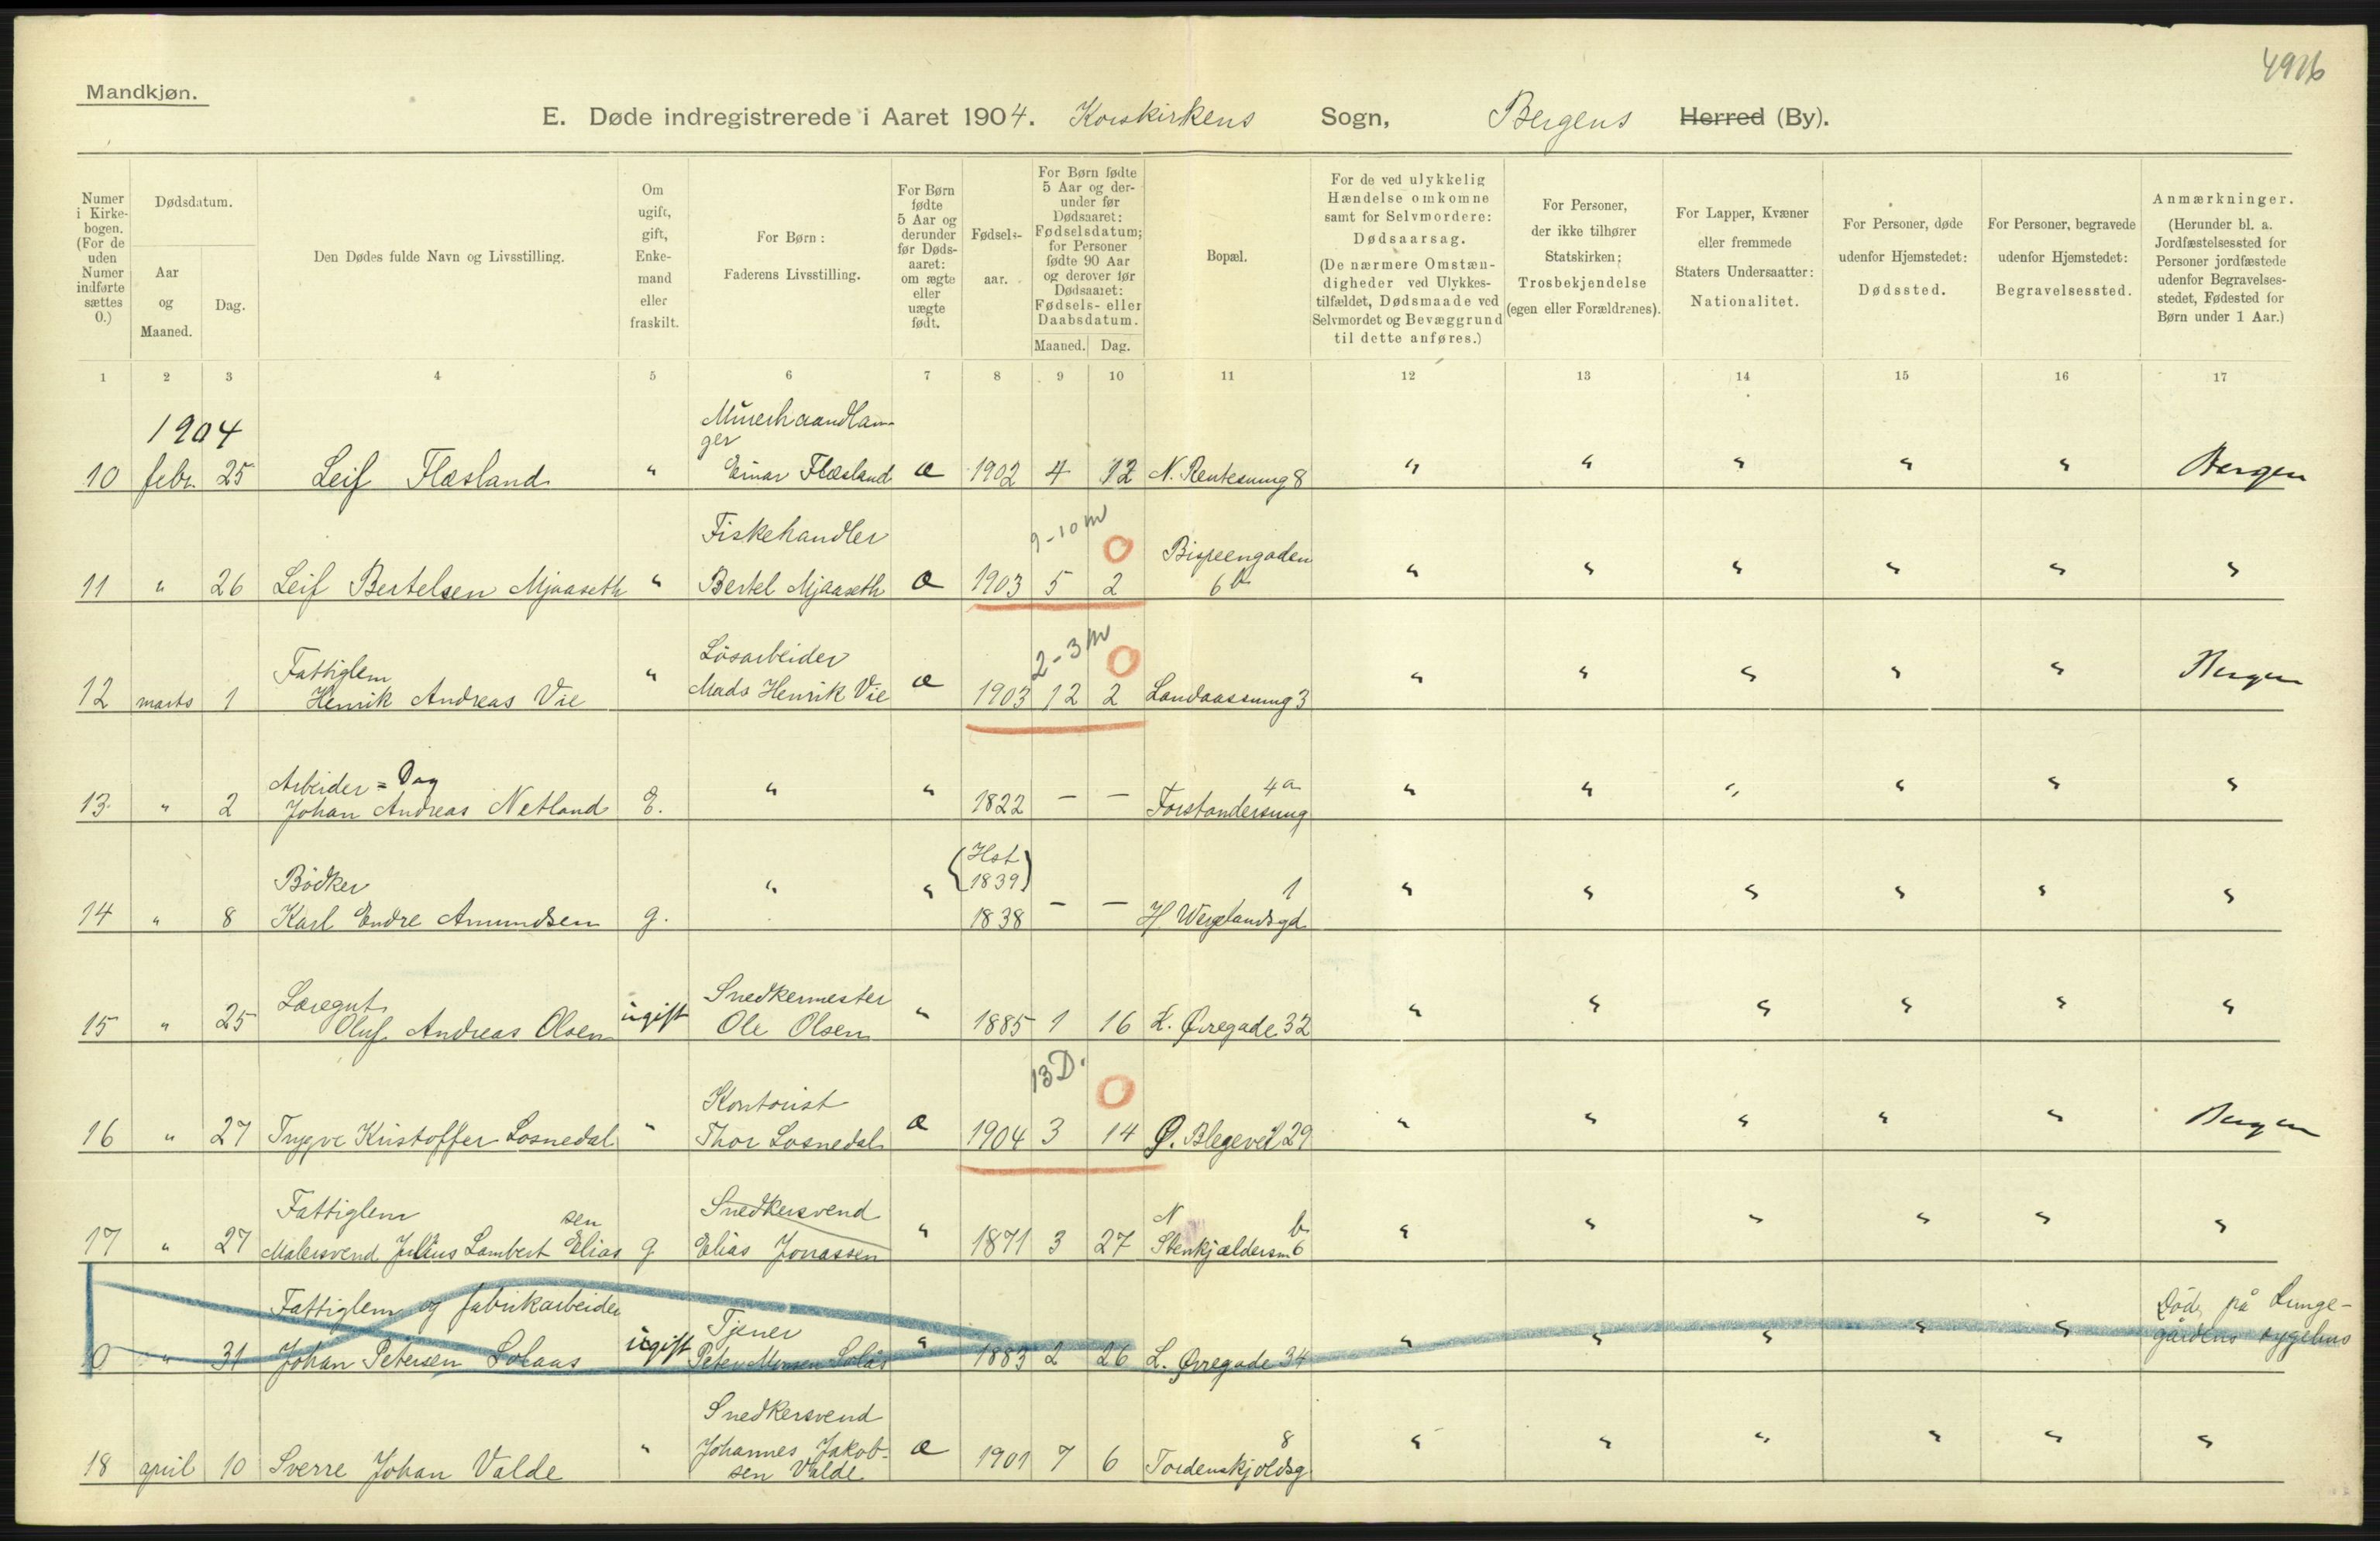 4926
Mandkjøn.
E. Døde indregistrerede i Aaret 1904. Korskirkens Sogn, Bergens Herred (By).
Numer i Kirkebogen. (For de uden Numer indførte sættes 0.)
Dødsdatum.
Aar og Maaned.
Dag.
Den Dødes fulde Navn og Livsstilling.
Om ugift, gift, Enkemand eller fraskilt.
For Børn: Faderens Livsstilling.
For Børn fødte 5 Aar og derunder før Dødsaaret: om ægte eller uægte født.
Fødselsaar.
For Børn fødte 5 Aar og derunder før Dødsaaret: Fødselsdatum; for Personer fødte 90 Aar og derover før Dødsaaret: Fødsels- eller Daabsdatum.
Maaned. Dag.
Bopæl.
For de ved ulykkelig Hændelse omkomne samt for Selvmordere: Dødsaarsag. (De nærmere Omstændigheder ved Ulykkestilfældet, Dødsmaade ved Selvmordet og Bevæggrund til dette anføres.)
For Personer, der ikke tilhører Statskirken; Trosbekjendelse (egen eller Forældrenes).
For Lapper, Kvæner eller fremmede Staters Undersaatter: Nationalitet.
For Personer, døde udenfor Hjemstedet: Dødssted.
For Personer, begravede udenfor Hjemstedet: Begravelsessted.
Anmærkninger. (Herunder bl. a. Jordfæstelsessted for Personer jordfæstede udenfor Begravelsesstedet, Fødested for Børn under 1 Aar.)
1 2 3 4 5 6 7 8 9 10 11 12 13 14 15 16 17
1904
Murerhaandlanger
10 febr. 25 Leif Flæsland " Einar Flæsland æ 1902 4 12 N. Rentesmug 8 " " " " " Bergen
Fiskehandler 9-10 m 0 Bispeengaden
11 " 26 Leif Bertelsen Mjaaseth " Bertel Mjaaseth æ 1903 5 2 6b " " " " " "
Fattiglem Løsarbeider 2-3 m 0
12 marts 1 Henrik Andreas Vie " Mads Henrik Vie æ 1903 12 2 Landaassmug 3 " " " " " Bergen
Arbeider = Dag 4a
13. " 2 Johan Andreas Netland E. " " 1822 – – Forstandersmug " " " " " "
Bødker (Hst 1839) 1
14 " 8 Karl Endre Amundsen g. " " 1838 – – H. Wergelandsgd " " " " " "
Læregut Snedkermester
15 " 25 Oluf Andreas Olsen ugift Ole Olsen " 1885 1 16 L. Øvregade 32 " " " " " "
Kontorist 13 D. 0
16 " 27 Trygve Kristoffer Losnedal " Thor Losnedal æ 1904 3 14 Ø. Blegevei 29 " " " " " Bergen
Fattiglem sen Snedkersvend N b
17 " 27 Malersvend Julius Lambert Elias g Elias Jonassen " 1871 3 27 Stenkjældersm 6 " " " " " "
Fattiglem og fabrikarbeider Tjener Død på Lunge-
0 " 31 Johan Petersen Solaas ugift Peter Monsen Solås " 1883 2 26 L. Øvregade 34 " " " " " gårdens sygehus
Snedkersvend
Johannes Jakob- 8
18 april 10 Sverre Johan Valde " sen Valde æ 1901 7 6 Tordenskjoldsg " " " " " "